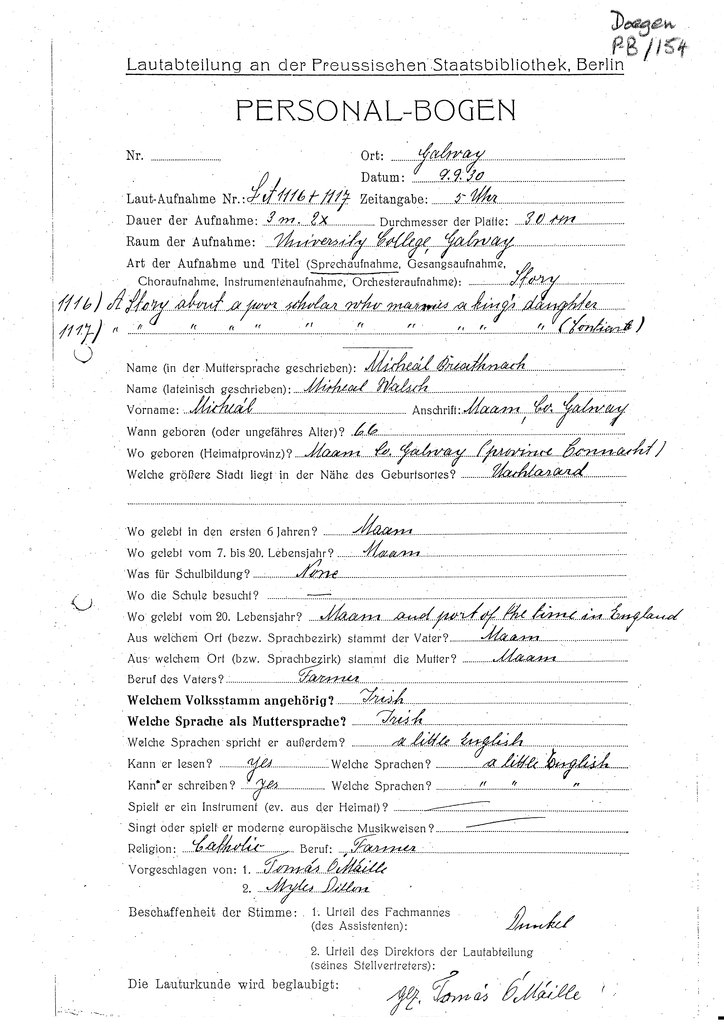 Doegen
PB/154
Lautabteilung an der Preussischen Staatsbibliothek, Berlin
PERSONAL-BOGEN
Nr. Ort: Galway
Datum: 9.9.30
Laut-Aufnahme Nr.: LA 1116 + 1117 Zeitangabe: 5 Uhr
Dauer der Aufnahme: 3 m. 2x Durchmesser der Platte: 30 cm
Raum der Aufnahme: University College, Galway
Art der Aufnahme und Titel (Sprechaufnahme, Gesangsaufnahme,
Choraufnahme, Instrumentenaufnahme, Orchesteraufnahme): Story
1116) A Story about a poor scholar who marries a king's daughter
1117) " " " " " " " " " " "
Name (in der Muttersprache geschrieben): Mícheál Breathnach
Name (lateinisch geschrieben): Micheal Walsh
Vorname: Micheál Anschrift: Maam, Co. Galway
Wann geboren (oder ungefähres Alter)? 66
Wo geboren (Heimatprovinz)? Maam Co. Galway (province Connacht)
Welche größere Stadt liegt in der Nähe des Geburtsortes? Uachtarard
Wo gelebt in den ersten 6 Jahren? Maam
Wo gelebt vom 7. bis 20. Lebensjahr? Maam
Was für Schulbildung? None
Wo die Schule besucht? —
Wo gelebt vom 20. Lebensjahr? Maam and part of the time in England
Aus welchem Ort (bezw. Sprachbezirk) stammt der Vater? Maam
Aus welchem Ort (bzw. Sprachbezirk) stammt die Mutter? Maam
Beruf des Vaters? Farmer
Welchem Volksstamm angehörig? Irish
Welche Sprache als Muttersprache? Irish
Welche Sprachen spricht er außerdem? a little English
Kann er lesen? yes Welche Sprachen? a little English
Kann er schreiben? yes Welche Sprachen? " " "
Spielt er ein Instrument (ev. aus der Heimat)? —
Singt oder spielt er moderne europäische Musikweisen? —
Religion: Catholic Beruf: Farmer
Vorgeschlagen von: 1. Tomás Ó Máille
2. Myles Dillon
Beschaffenheit der Stimme: 1. Urteil des Fachmannes
(des Assistenten): Dunkel
2. Urteil des Direktors der Lautabteilung
(seines Stellvertreters):
Die Lauturkunde wird beglaubigt:
gez. Tomás Ó Máille